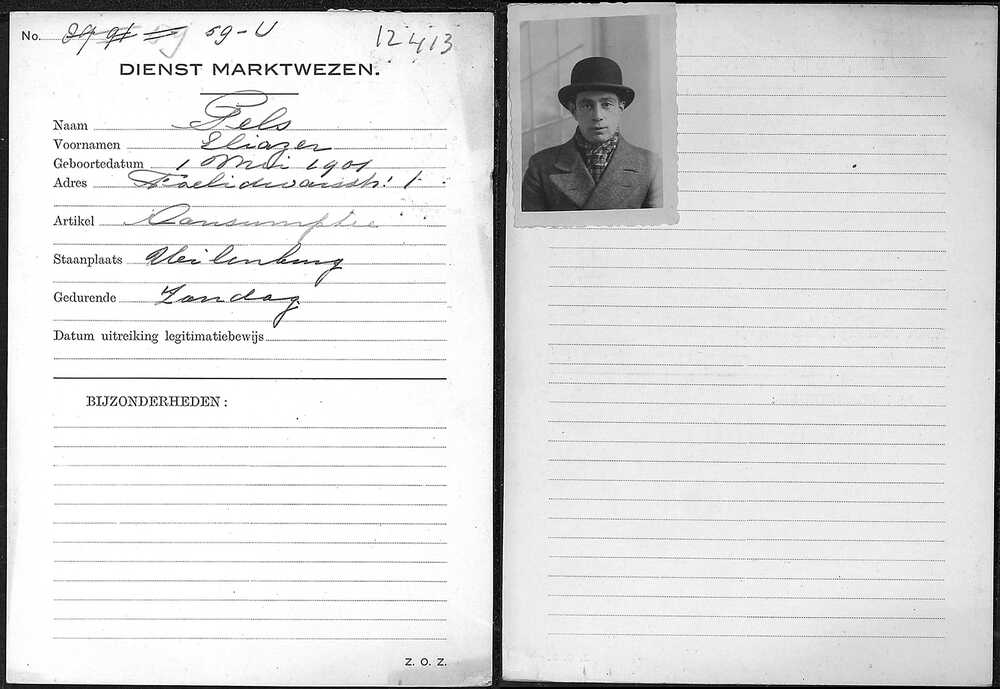 No. 59 59-U 12413
DIENST MARKTWEZEN.
Naam Pels
Voornamen Eliazer
Geboortedatum 1 Mei 1901
Adres Foeliedwarsstr. 1
Artikel Consumptie
Staanplaats Uilenburg
Gedurende Zondag
Datum uitreiking legitimatiebewijs
BIJZONDERHEDEN:
Z. O. Z.